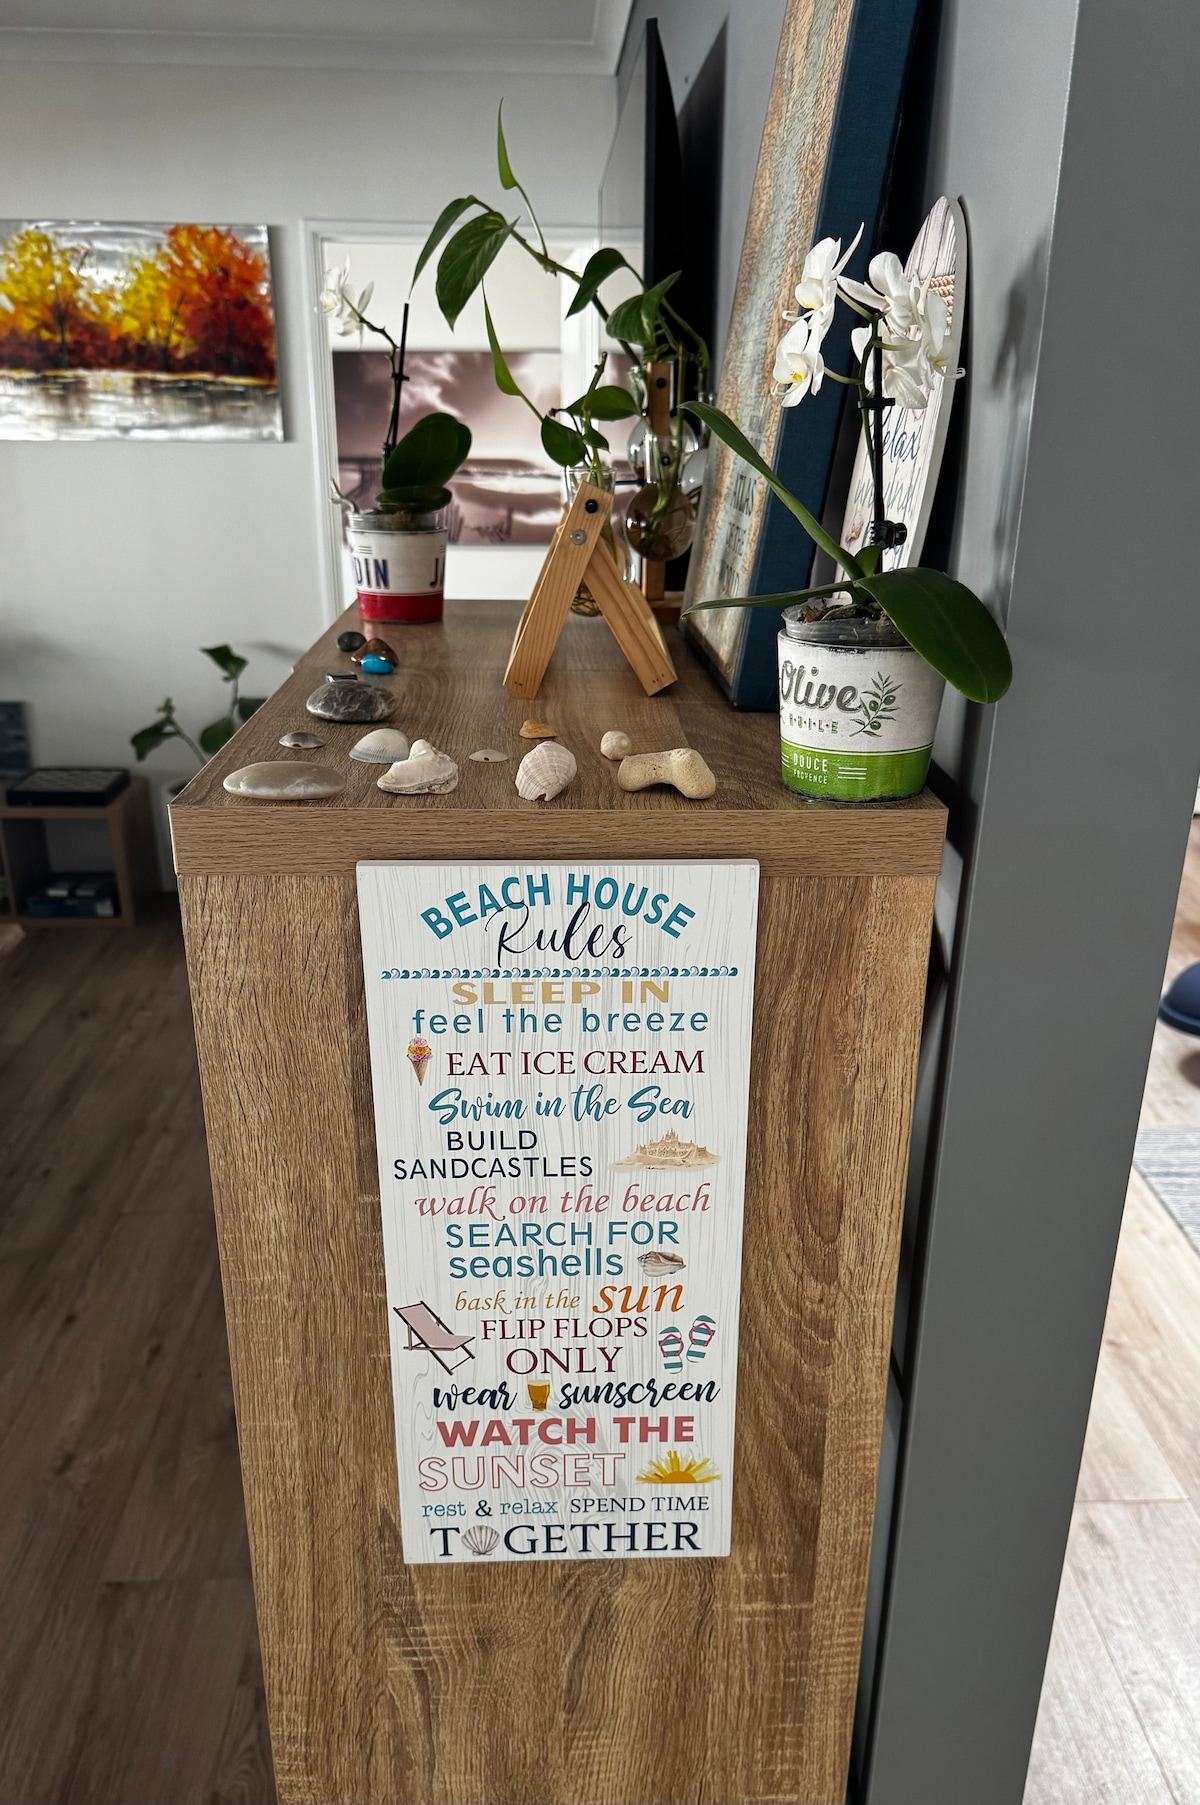 DIN
Olive
HUILE
DOUCE
PROVENCE
BEACH HOUSE
Rules
SLEEP IN
feel the breeze
EAT ICE CREAM
Swim in the Sea
BUILD
SANDCASTLES
walk on the beach
SEARCH FOR
seashells
bask in the sun
FLIP FLOPS
ONLY
wear sunscreen
WATCH THE
SUNSET
rest & relax SPEND TIME
TOGETHER